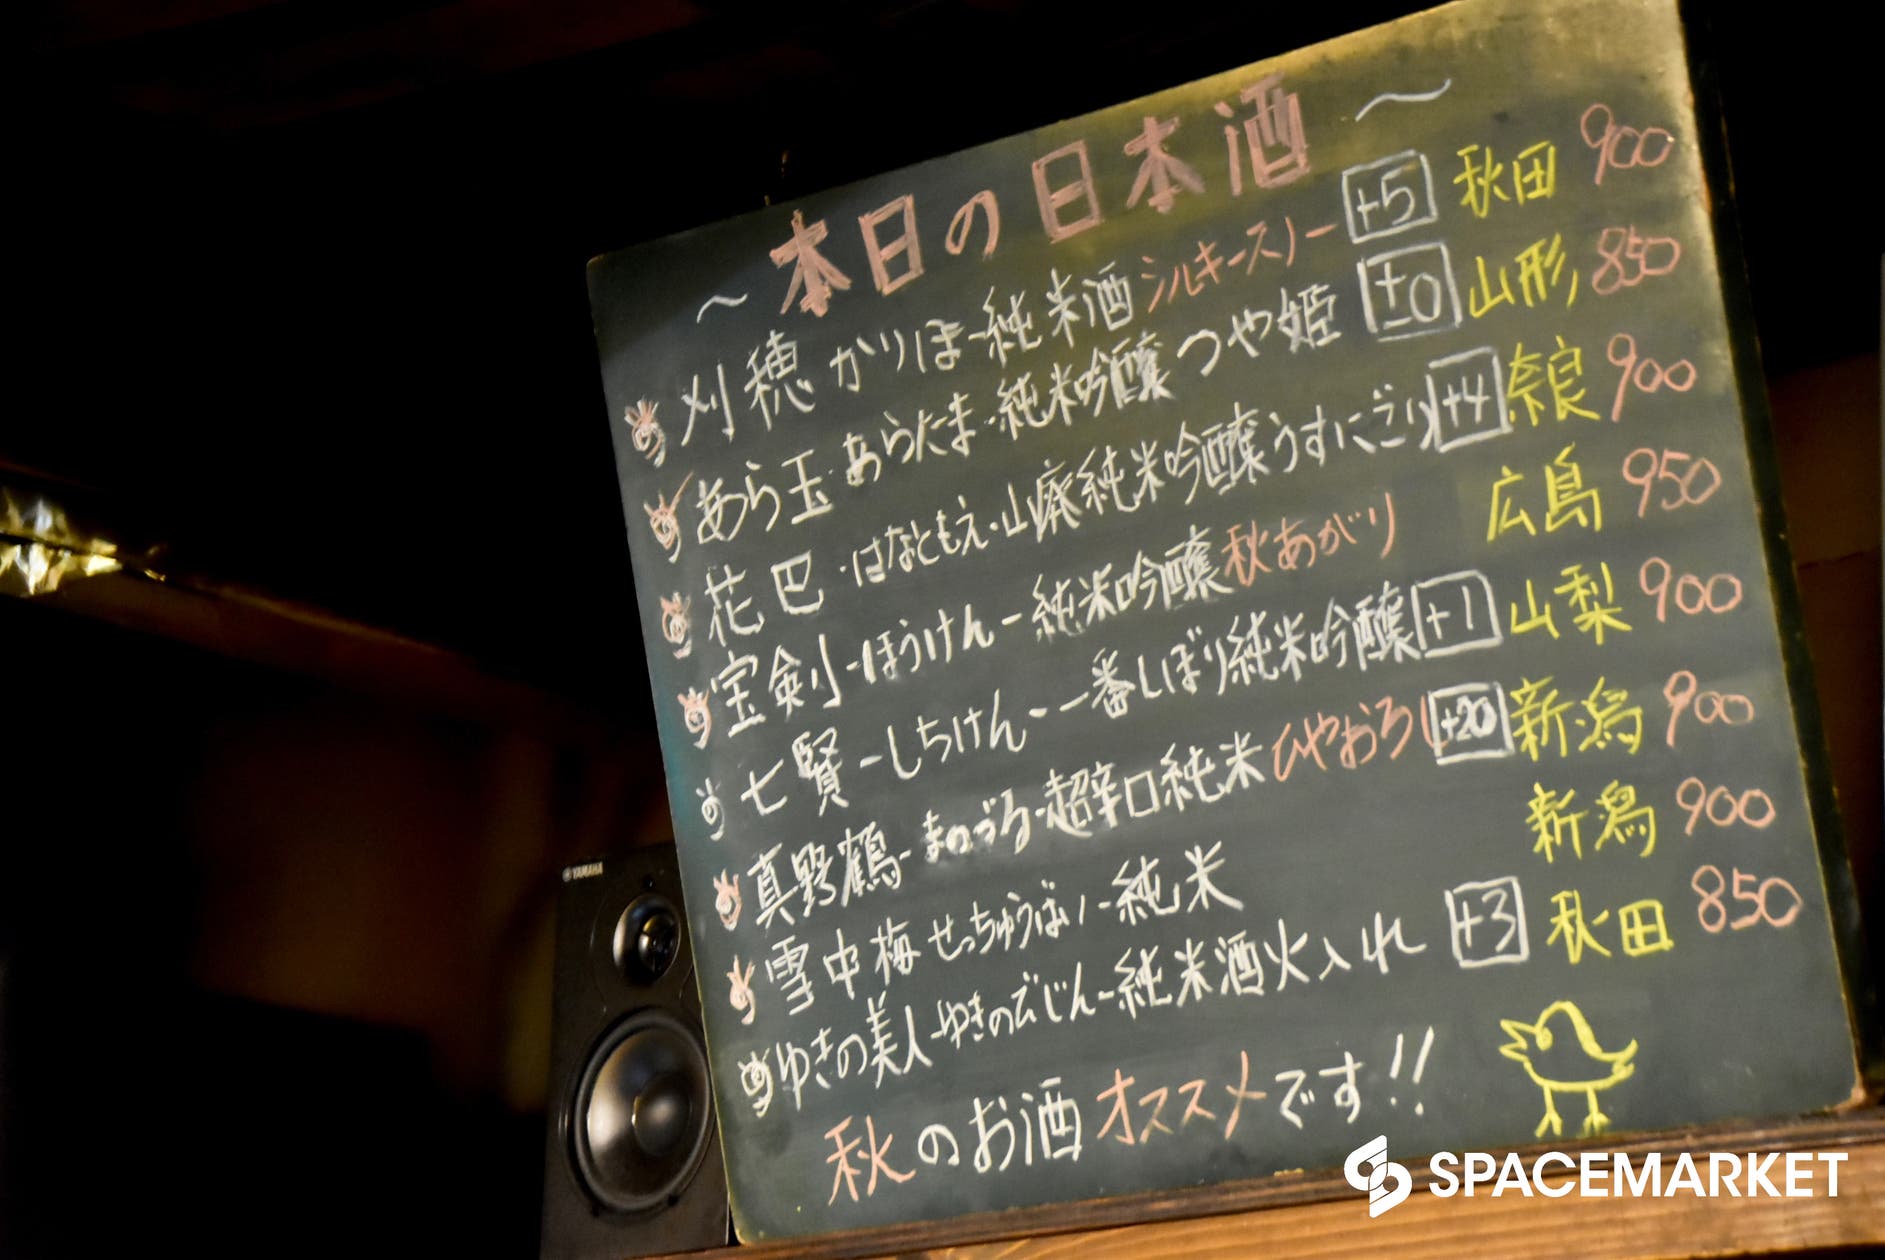 ～本日の日本酒～
刈穂 かりほ-純米酒 シルキースノー +5 秋田 900
あら玉・あらたま・純米吟醸 つや姫 ±0 山形 850
花巴・はなともえ・山廃純米吟醸うすにごり +4 奈良 900
宝剣-ほうけん-純米吟醸秋あがり 広島 950
七賢-しちけん-一番しぼり純米吟醸 +1 山梨 900
真野鶴-まのづる-超辛口純米ひやおろし +20 新潟 900
雪中梅 せっちゅうばい-純米 新潟 900
ゆきの美人-ゆきのびじん-純米酒火入れ +3 秋田 850
秋のお酒オススメです!!
YAMAHA
SPACEMARKET